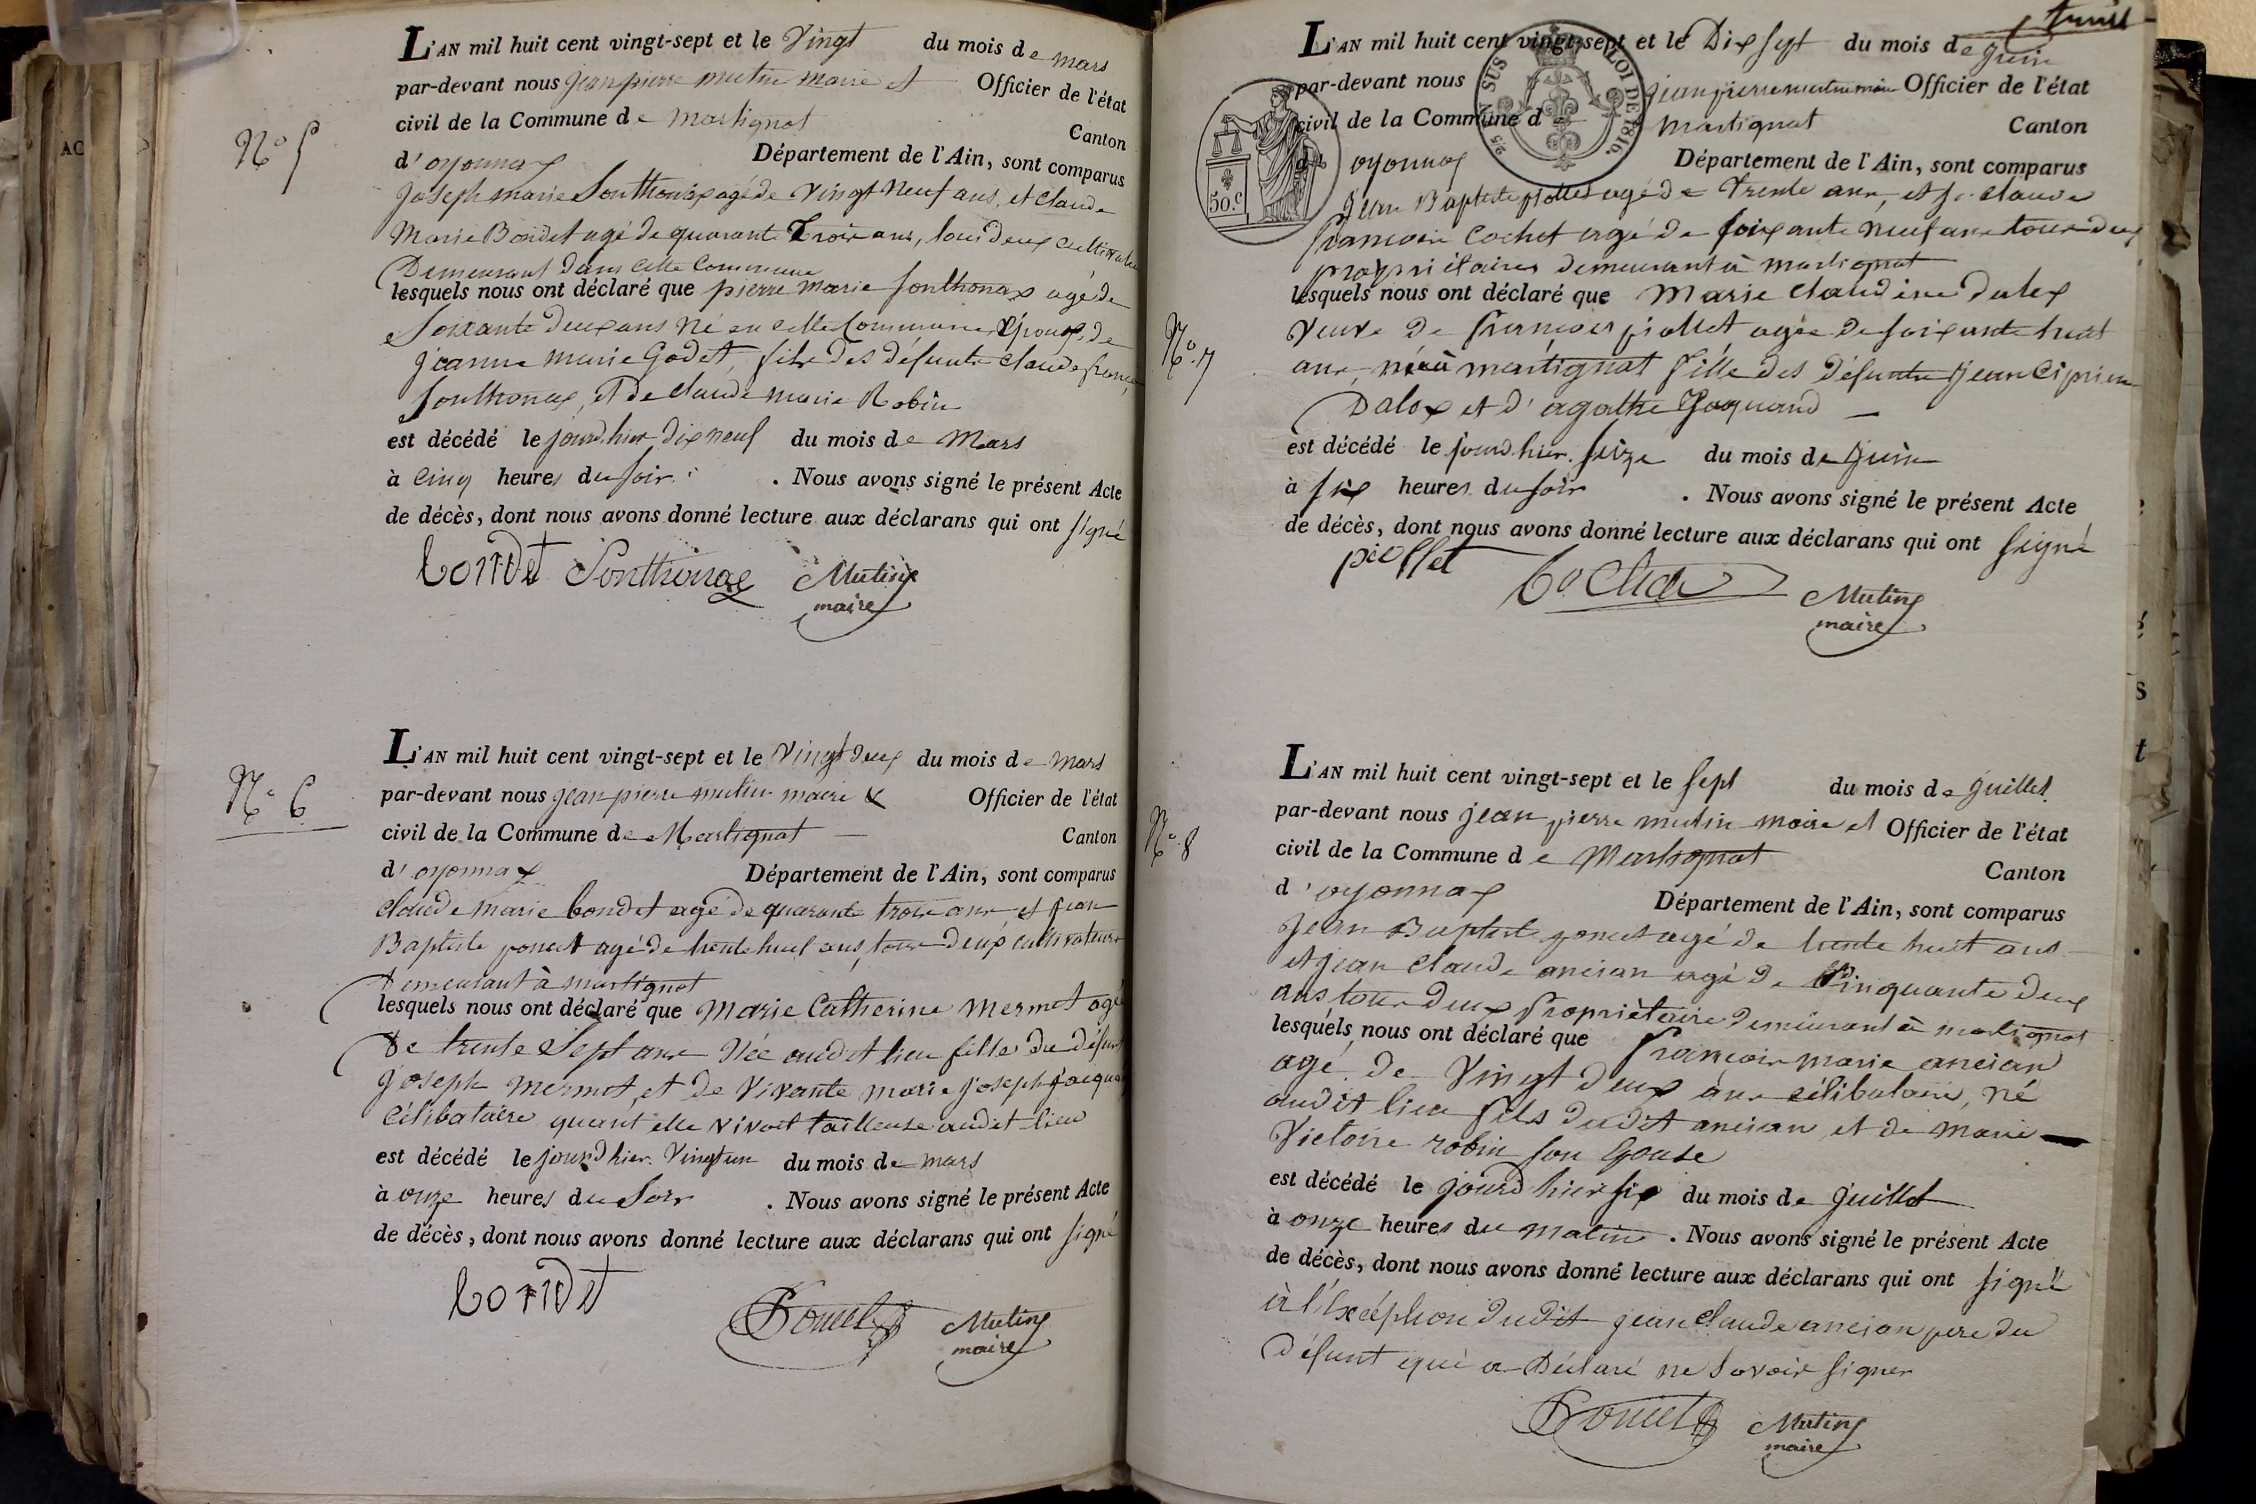 N.o 5
L'AN mil huit cent vingt-sept et le Vingt du mois de mars
par-devant nous jean pierre mutin maire et Officier de l'état
civil de la Commune de Martignat Canton
d'oyonnax Département de l'Ain, sont comparus
joseph marie Sonthonax agé de vingt Neuf ans, et claude
Marie Bondet agé de quarante Trois ans, tous deux cultivateurs
Demeurant dans cette Commune
lesquels nous ont déclaré que pierre marie sonthonax agé de
Soixante deux ans né en cette Commune Epoux de
jeanne marie Godet, fils des défunts claude françois
Sonthonax, et de claude marie Robin
est décédé le jourd'hier dix neuf du mois de Mars
à cinq heures du soir. Nous avons signé le présent Acte
de décès, dont nous avons donné lecture aux déclarans qui ont signé
bondet Sonthonax Mutin
maire
N.o 6
L'AN mil huit cent vingt-sept et le Vingt deux du mois de mars
par-devant nous jean pierre mutin maire & Officier de l'état
civil de la Commune de Martignat Canton
d'oyonnax Département de l'Ain, sont comparus
claude marie bondet agé de quarante trois ans et jean
Baptiste poncet agé de trente huit ans, tous deux cultivateurs
Demeurant à martignat
lesquels nous ont déclaré que Marie Catherine Mermet agé
De trente Sept ans Née audit lieu fille du défunt
joseph mermet, et de Vivante marie joseph jacquand
Célibataire quant elle vivoit tailleuse audit lieu
est décédé le jourd'hier Vingt un du mois de mars
à onze heures du Soir. Nous avons signé le présent Acte
de décès, dont nous avons donné lecture aux déclarans qui ont signé
bondet Poncet Mutin
maire
N.o 7
L'AN mil huit cent vingt-sept et le Dix sept du mois de juin
par-devant nous jean pierre mutin maire Officier de l'état
civil de la Commune d martignat Canton
oyonnax Département de l'Ain, sont comparus
50.c
LOI DE 1816.
jean Baptiste piollet agé de trente ans, et jn. claude
françois Cochet agé de soixante neuf ans tous deux
propriétaires demeurant à martignat
lesquels nous ont déclaré que Marie claudine dalex
veuve de françois piollet agée de soixante huit
ans, née à martignat fille des défunts jean ciprien
Dalex et d'agathe Jaquand
est décédé le jourd'hier seize du mois de juin
à six heures du soir. Nous avons signé le présent Acte
de décès, dont nous avons donné lecture aux déclarans qui ont signé
piollet Cochet Mutin
maire
N.o 8
L'AN mil huit cent vingt-sept et le sept du mois de juillet
par-devant nous jean pierre mutin maire et Officier de l'état
civil de la Commune de Martignat Canton
d'oyonnax Département de l'Ain, sont comparus
jean Baptiste poncet agé de trente huit ans
et jean claude ancian agé de Cinquante deux
ans tous deux propriétaire demeurant à martignat
lesquels nous ont déclaré que françois marie ancian
agé de Vingt deux ans célibataire, né
audit lieu fils dudit ancian et de marie
Victoire robin son épouse
est décédé le jourd'hier six du mois de juillet
à onze heures du matin. Nous avons signé le présent Acte
de décès, dont nous avons donné lecture aux déclarans qui ont signé
à l'Exception dudit jean claude ancian pere du
défunt qui a Déclaré ne savoir signer
Poncet Mutin
maire